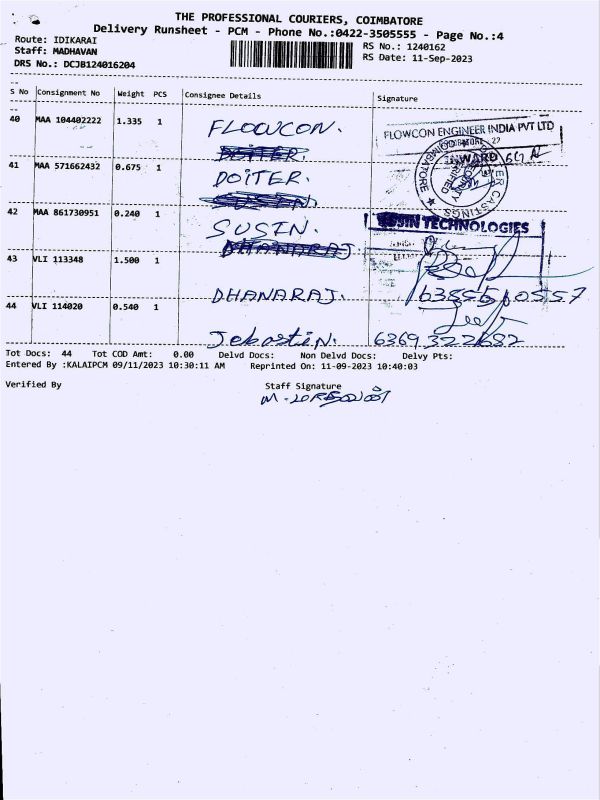 THE PROFESSIONAL COURIERS, COIMBATORE
Delivery Runsheet - PCM - Phone No.:0422-3505555 - Page No.:4
Route: IDIKARAI
RS No.: 1240162
Staff: MADHAVAN
RS Date: 11-Sep-2023
DRS No.: DCJB124016204
S No Consignment No Weight PCS Consignee Details Signature
40 MAA 104402222 1.335 1 FLOWCON.
FLOWCON ENGINEER INDIA PVT LTD
COIMBATORE 27
INWARD
DOITER.
41 MAA 571662432 0.675 1 DOITER.
SUSIN.
42 MAA 861730951 0.240 1 SUSIN.
SUSIN TECHNOLOGIES
DHANARAJ
43 VLI 113348 1.500 1
DHANARAJ. 6385510557
44 VLI 114020 0.540 1
Jebastin. 6369322682
Tot Docs: 44 Tot COD Amt: 0.00 Delvd Docs: Non Delvd Docs: Delvy Pts:
Entered By :KALAIPCM 09/11/2023 10:30:11 AM Reprinted On: 11-09-2023 10:40:03
Verified By Staff Signature